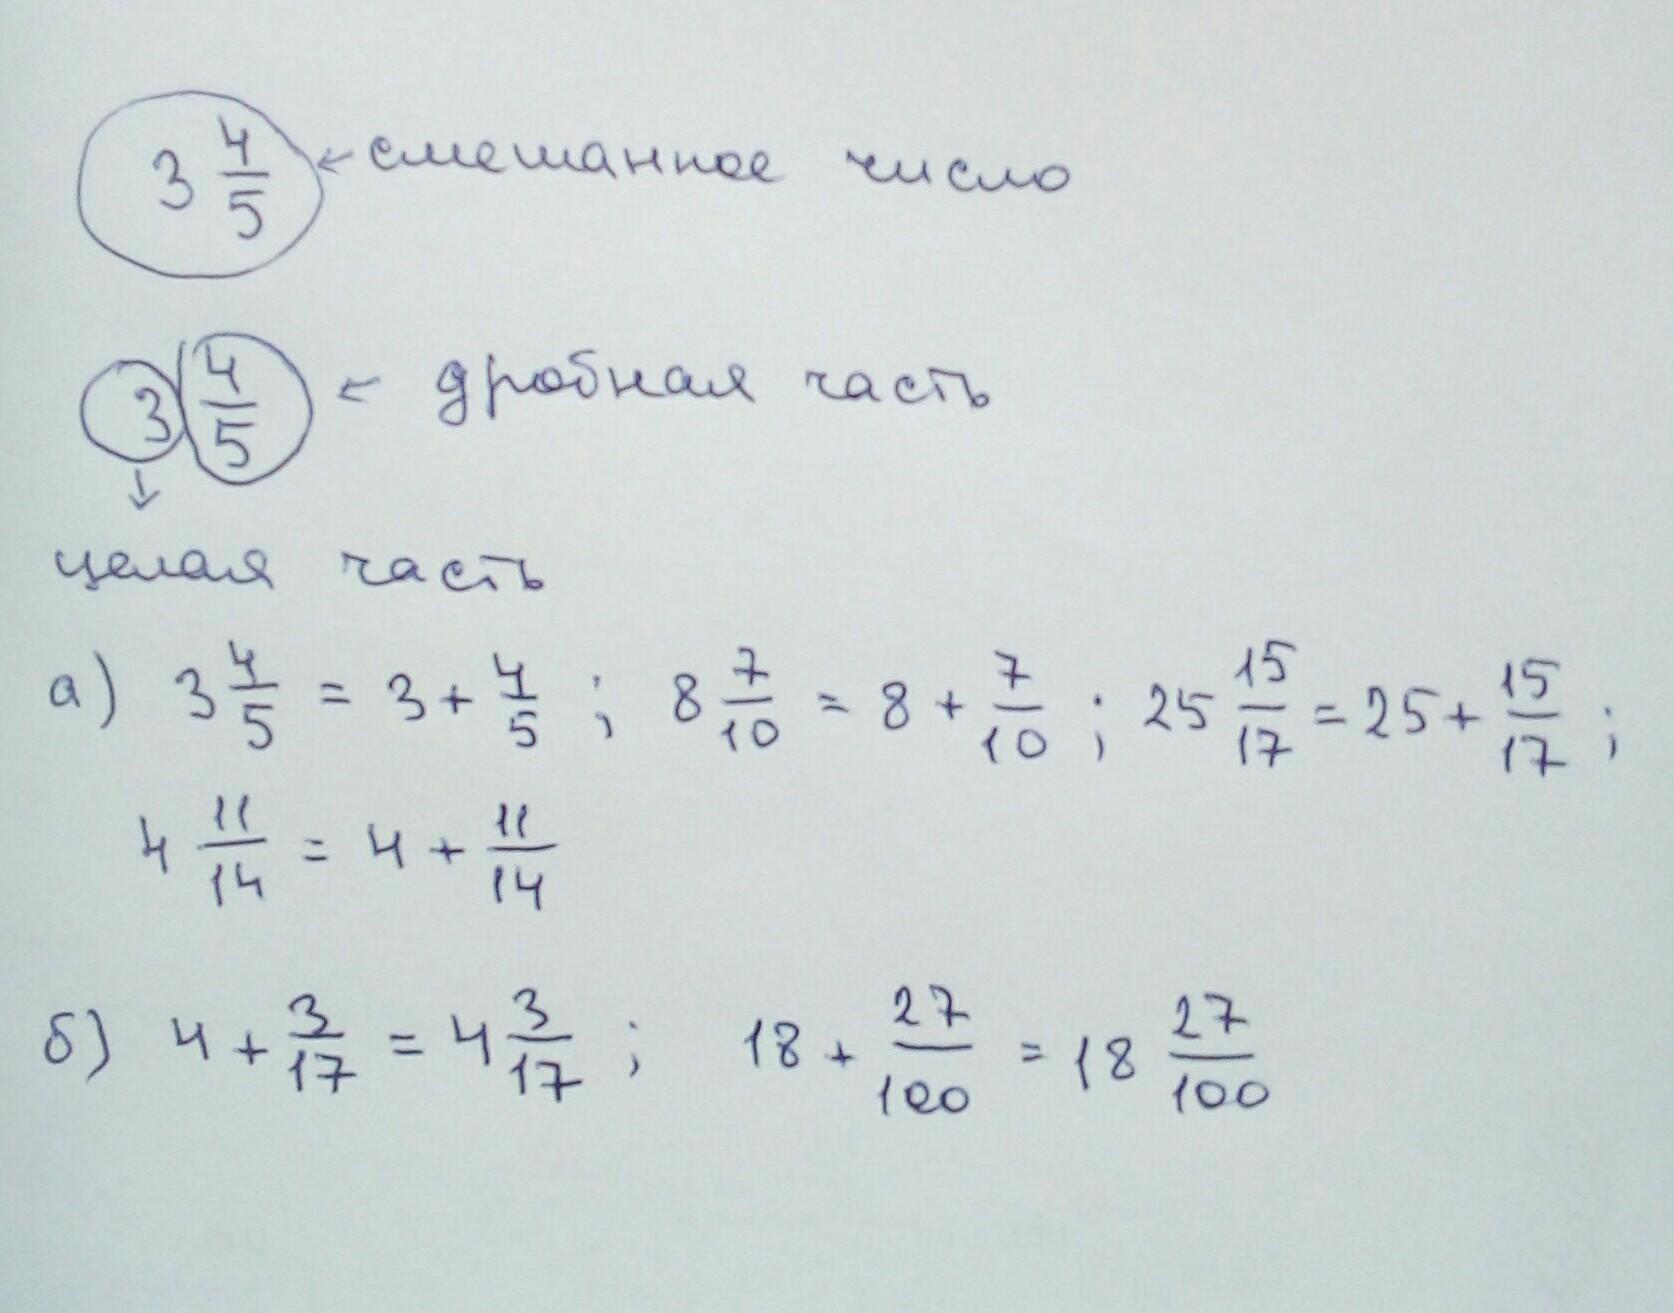 3 4/5 ← смешанное число
3 4/5 ← дробная часть
↓
целая часть
а) 3 4/5 = 3 + 4/5 ; 8 7/10 = 8 + 7/10 ; 25 15/17 = 25 + 15/17 ;
4 11/14 = 4 + 11/14
б) 4 + 3/17 = 4 3/17 ; 18 + 27/100 = 18 27/100